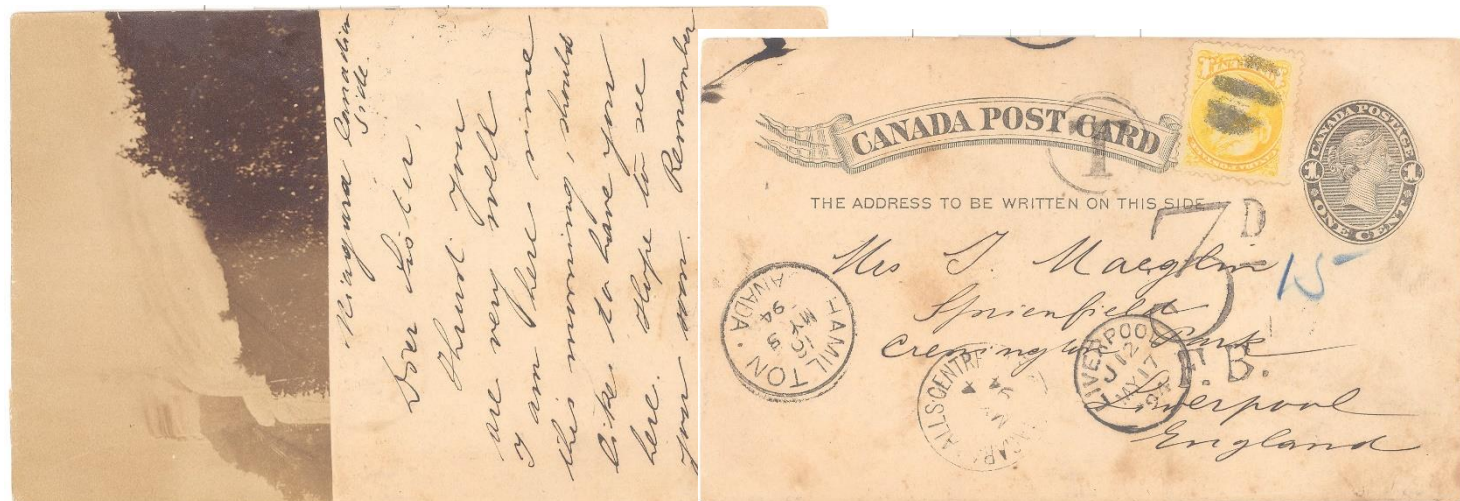 Niagara Canadian
Side.
Dear Sister,
trust you
are very well
I am there since
this morning, should
like to have you
here. Hope to see
you soon. Remember
CANADA POST CARD
THE ADDRESS TO BE WRITTEN ON THIS SIDE
CANADA POSTAGE
1 1
ONE CENT
T
7 D
15
Mrs
Park
Liverpool
England
HAMILTON
MY 5
94
CANADA
FALLS CENTRE
LIVERPOOL
MY 17
94
F. B.